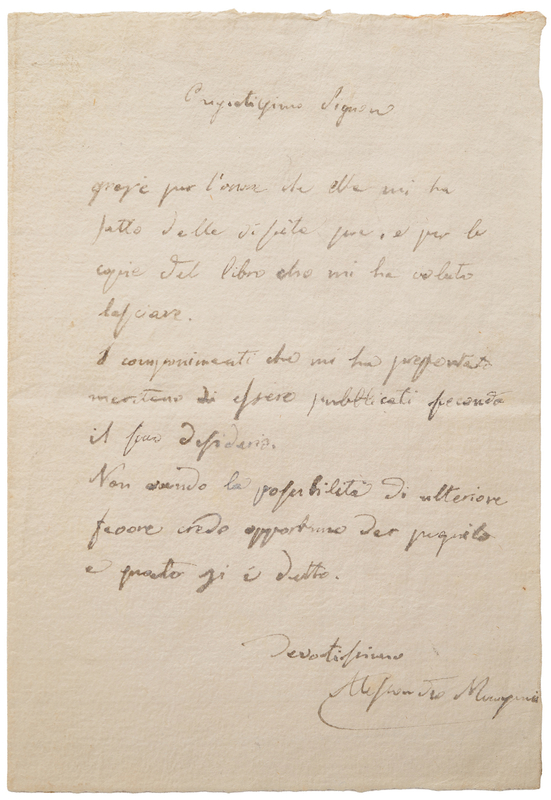 Pregiatissimo Signore
grazie per l'onore che Ella mi ha
fatto delle visite sue, e per le
copie del libro che mi ha voluto
lasciare.
I componimenti che mi ha presentato
meritano di essere pubblicati secondo
il suo desiderio.
Non avendo la possibilità di ulteriore
favore credo opportuno dar seguito
a quanto si è detto.
Devotissimo
Alessandro